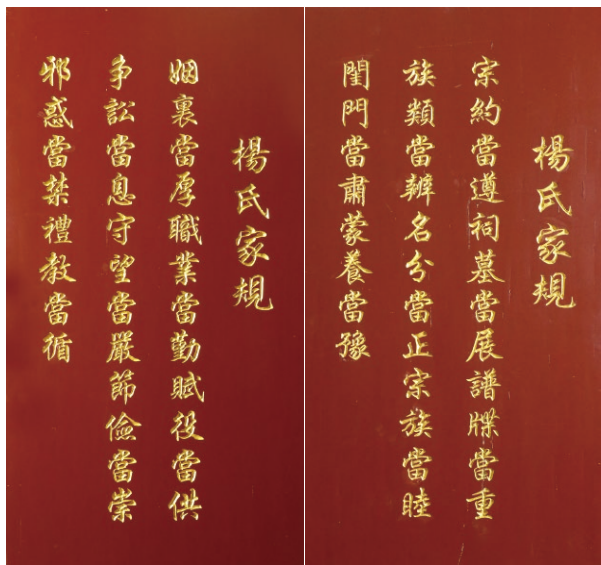 楊氏家規
宗約當遵祠墓當展譜牒當重
族類當辨名分當正宗族當睦
閨門當肅蒙養當豫
楊氏家規
姻裏當厚職業當勤賦役當供
争訟當息守望當嚴節儉當崇
邪惑當禁禮教當循